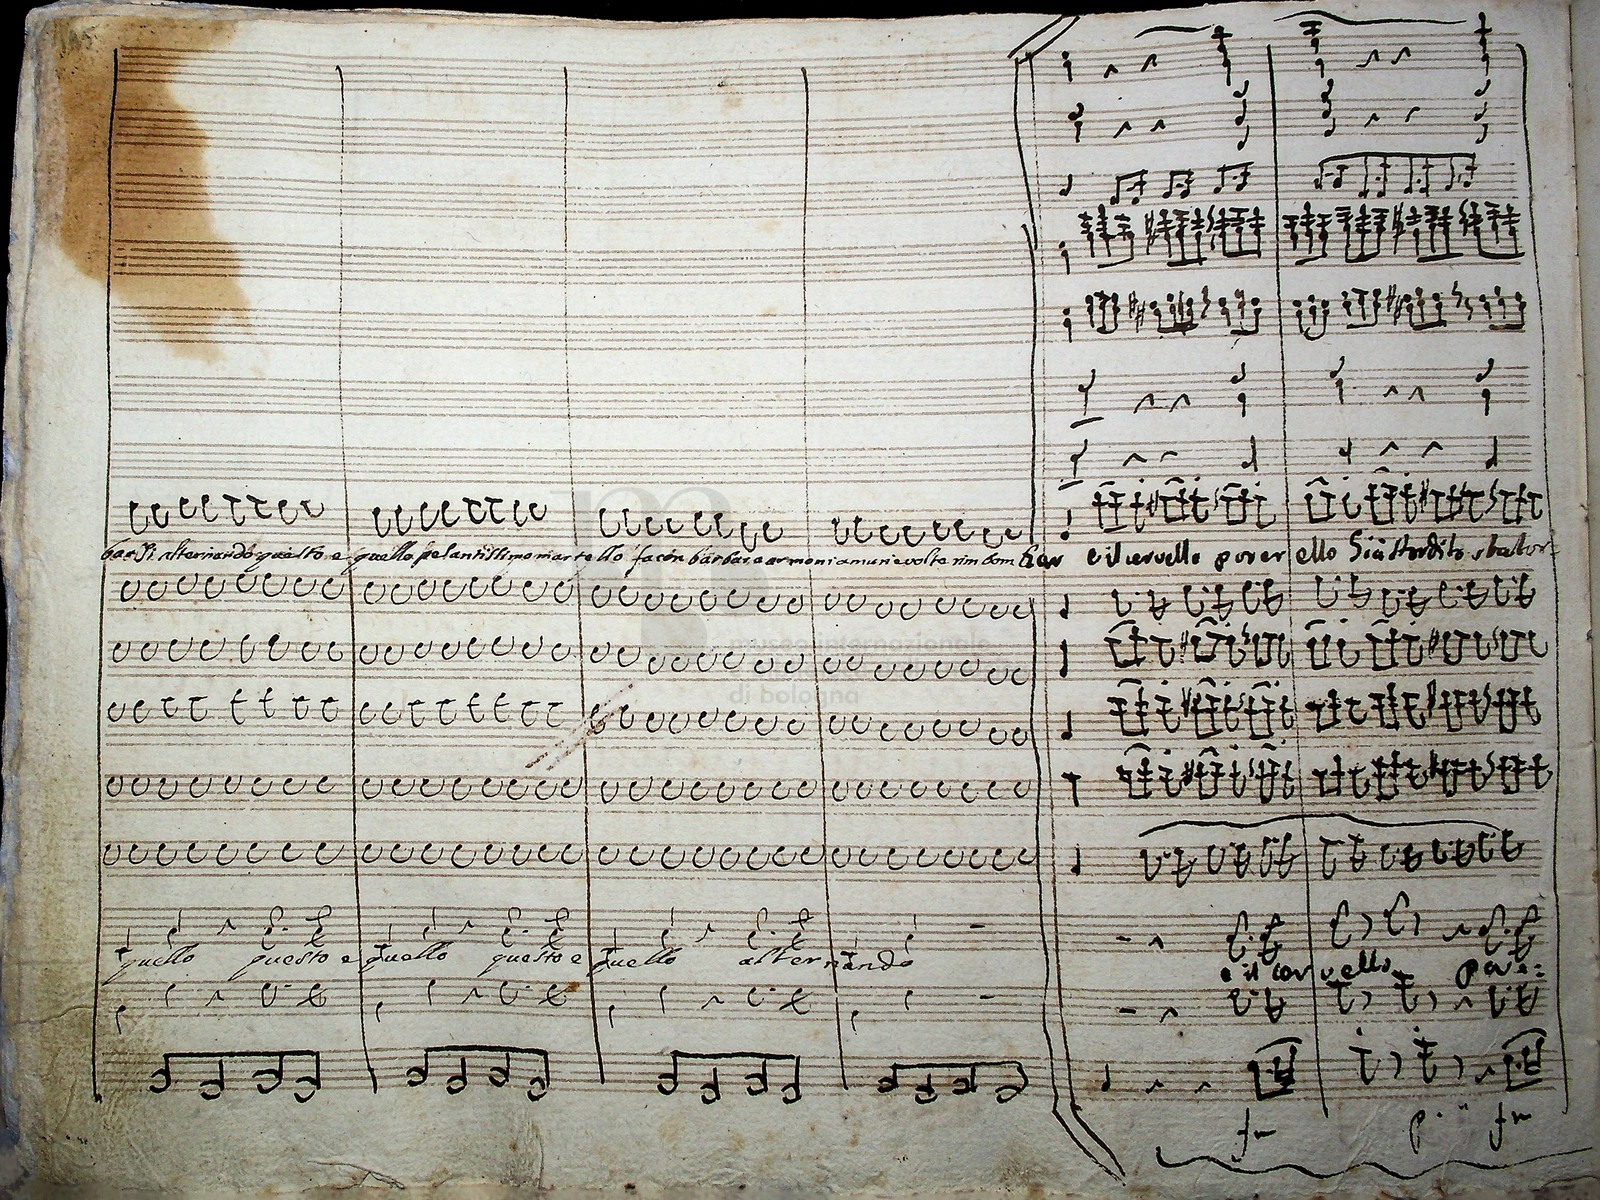 bar si alternando questo e quello pesantissimo martello fa con barbara armonia muri e volte rimbombar e il cervello poverello Già stordito sbalor=
museo internazionale
di bologna
quello questo e quello questo e quello alternando
e il cervello pove=
fm p. fm